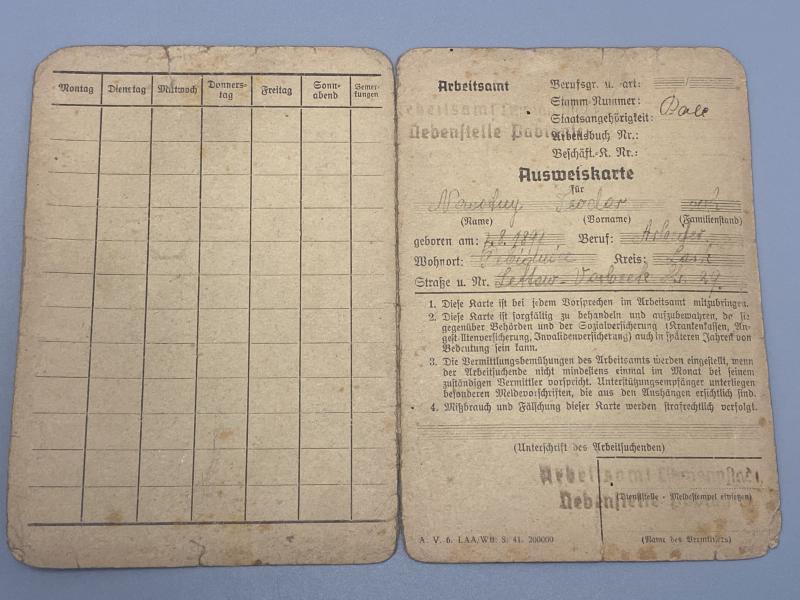 Montag Dienstag Mittwoch Donners- Freitag Sonn- Bemer-
tag abend kungen
Arbeitsamt
Berufsgr. u. -art: /
Stamm-Nummer:
Staatsangehörigkeit: Pole
Nebenstelle Pabianitz
Arbeitsbuch Nr.:
Beschäft.-K. Nr.:
Ausweiskarte
für
Teodor
(Name) (Vorname) (Familienstand)
geboren am: 1891 Beruf: Arbeiter
Wohnort: Kreis: Lask
Straße u. Nr. Lettow-Vorbeck Str. 29.
1. Diese Karte ist bei jedem Vorsprechen im Arbeitsamt mitzubringen.
2. Diese Karte ist sorgfältig zu behandeln und aufzubewahren, da sie
gegenüber Behörden und der Sozialversicherung (Krankenkassen, An-
gestelltenversicherung, Invalidenversicherung) auch in späteren Jahren von
Bedeutung sein kann.
3. Die Vermittlungsbemühungen des Arbeitsamts werden eingestellt, wenn
der Arbeitsuchende nicht mindestens einmal im Monat bei seinem
zuständigen Vermittler vorspricht. Unterstützungsempfänger unterliegen
besonderen Meldevorschriften, die aus den Aushängen ersichtlich sind.
4. Mißbrauch und Fälschung dieser Karte werden strafrechtlich verfolgt.
(Unterschrift des Arbeitsuchenden)
Arbeitsamt Litzmannstadt
Nebenstelle Pabianitz
(Dienststelle - Meldestempel einsetzen)
A. V. 6. LAA/Wtl. S. 41. 200000
(Name des Vermittlers)